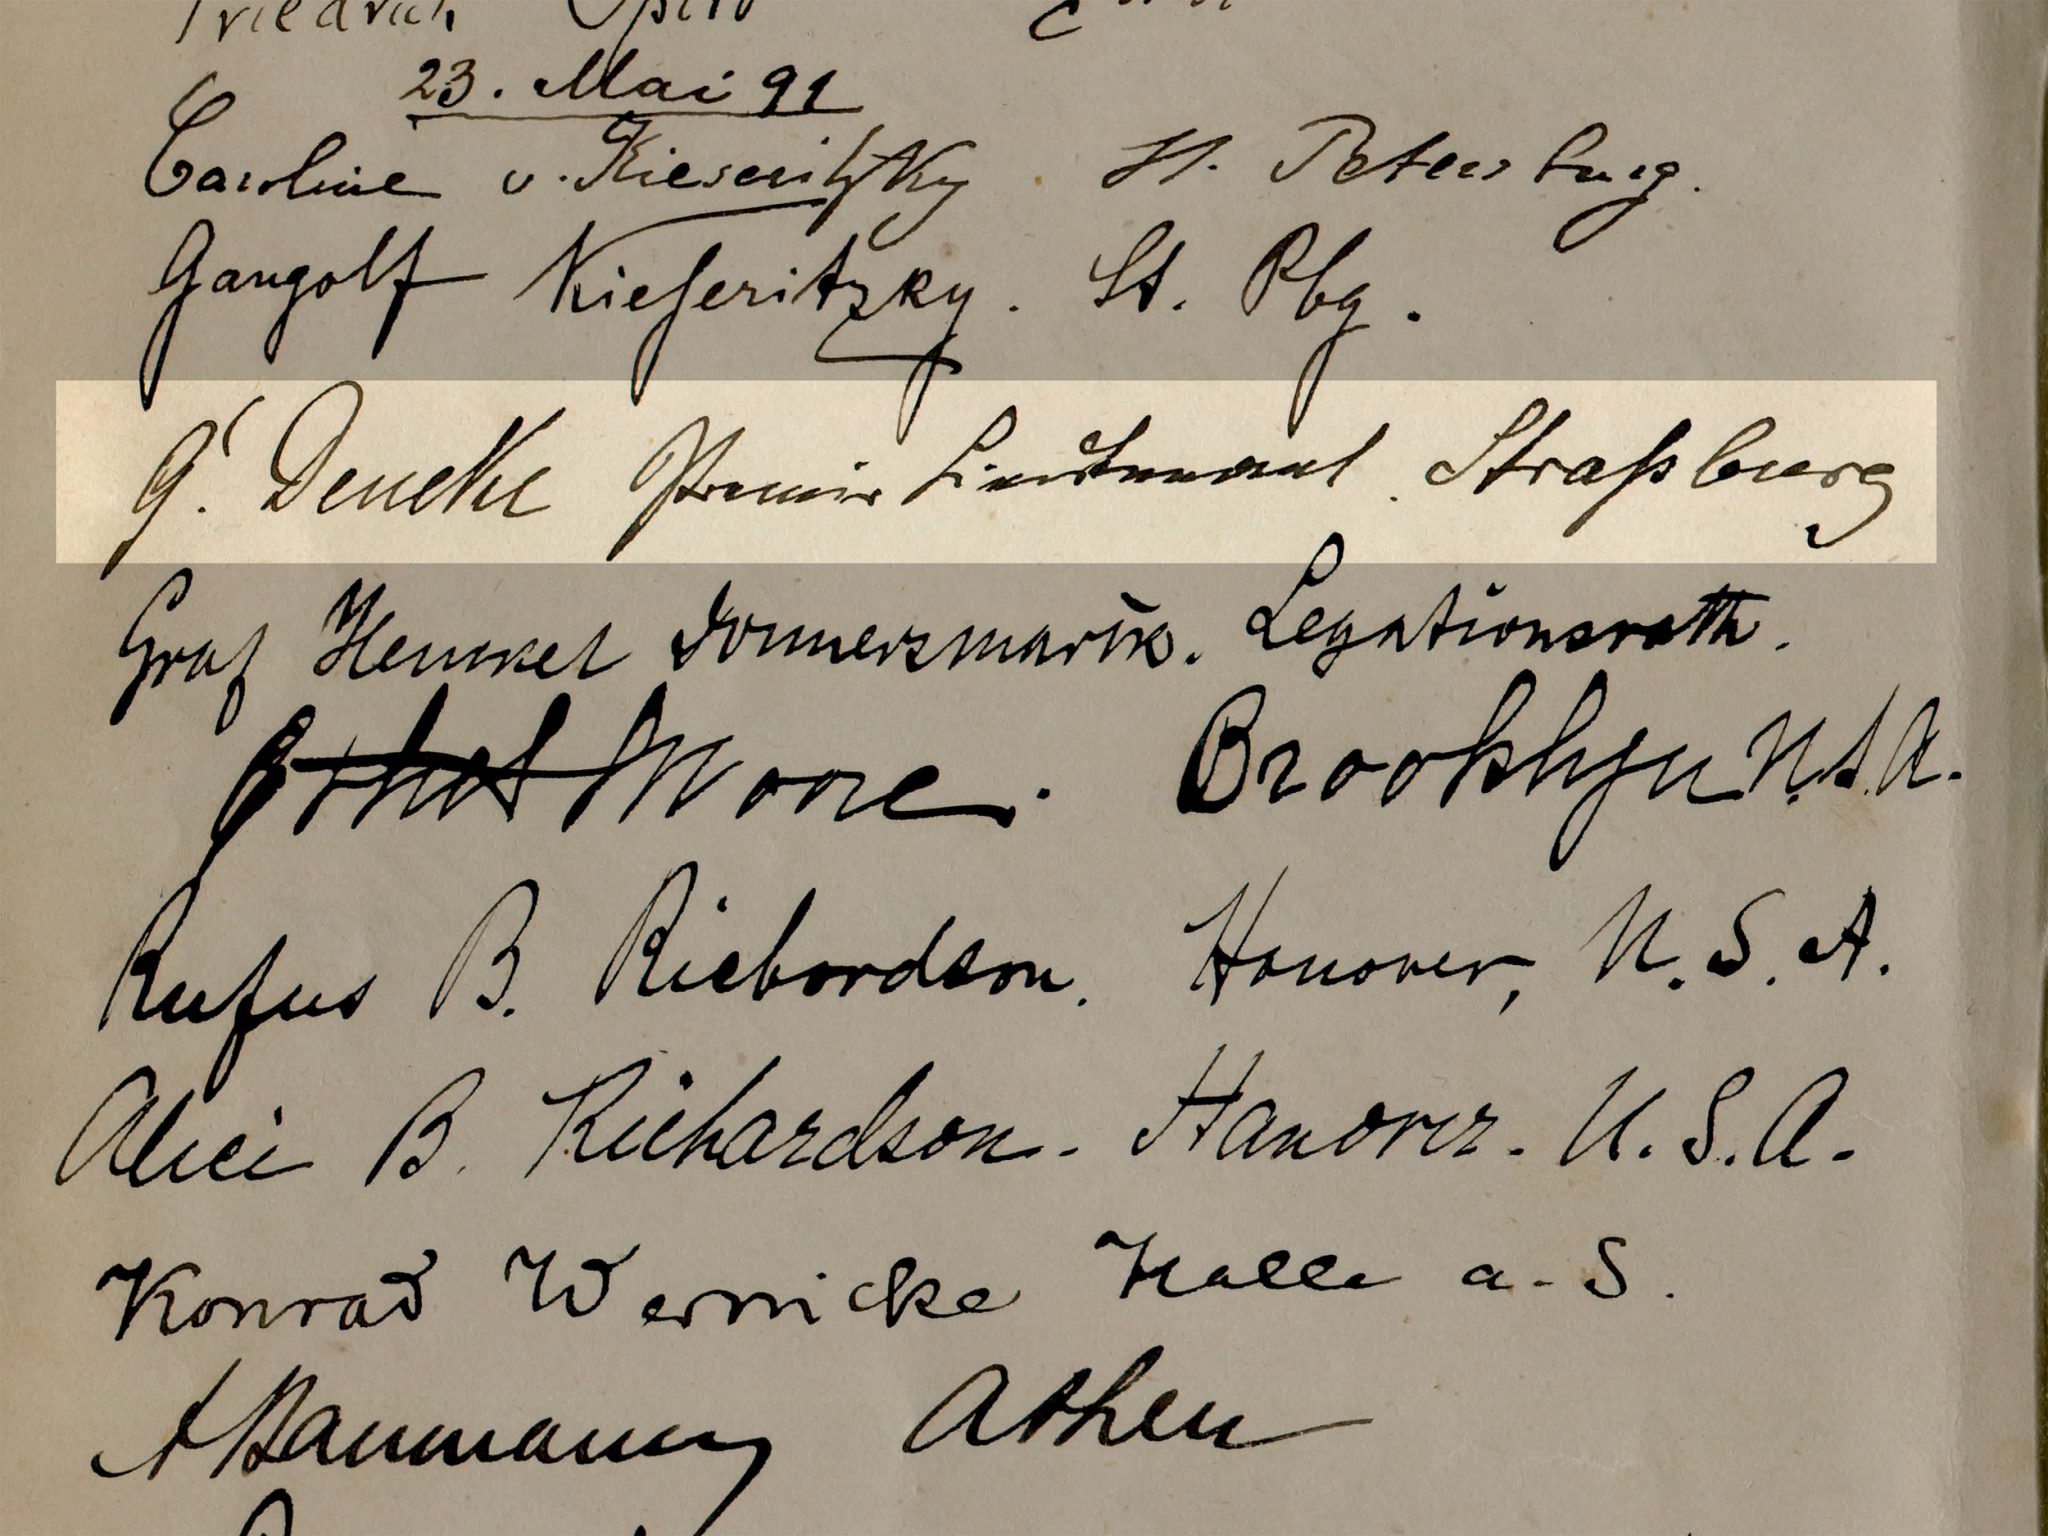 Friedrich
23. Mai 91
Caroline v. Kieseritzky St. Petersburg.
Gangolf Kieseritzky. St. Pbg.
G. Deneke Premier Lieutenant Straßburg
Graf Henckel Donnersmarck. Legationsrath.
Ethel Moore. Brooklyn U.S.A.
Rufus B. Richardson. Hanover, U.S.A.
Alice B. Richardson. Hanover. U.S.A.
Konrad Wernicke Halle a. S.
Baumann Athen